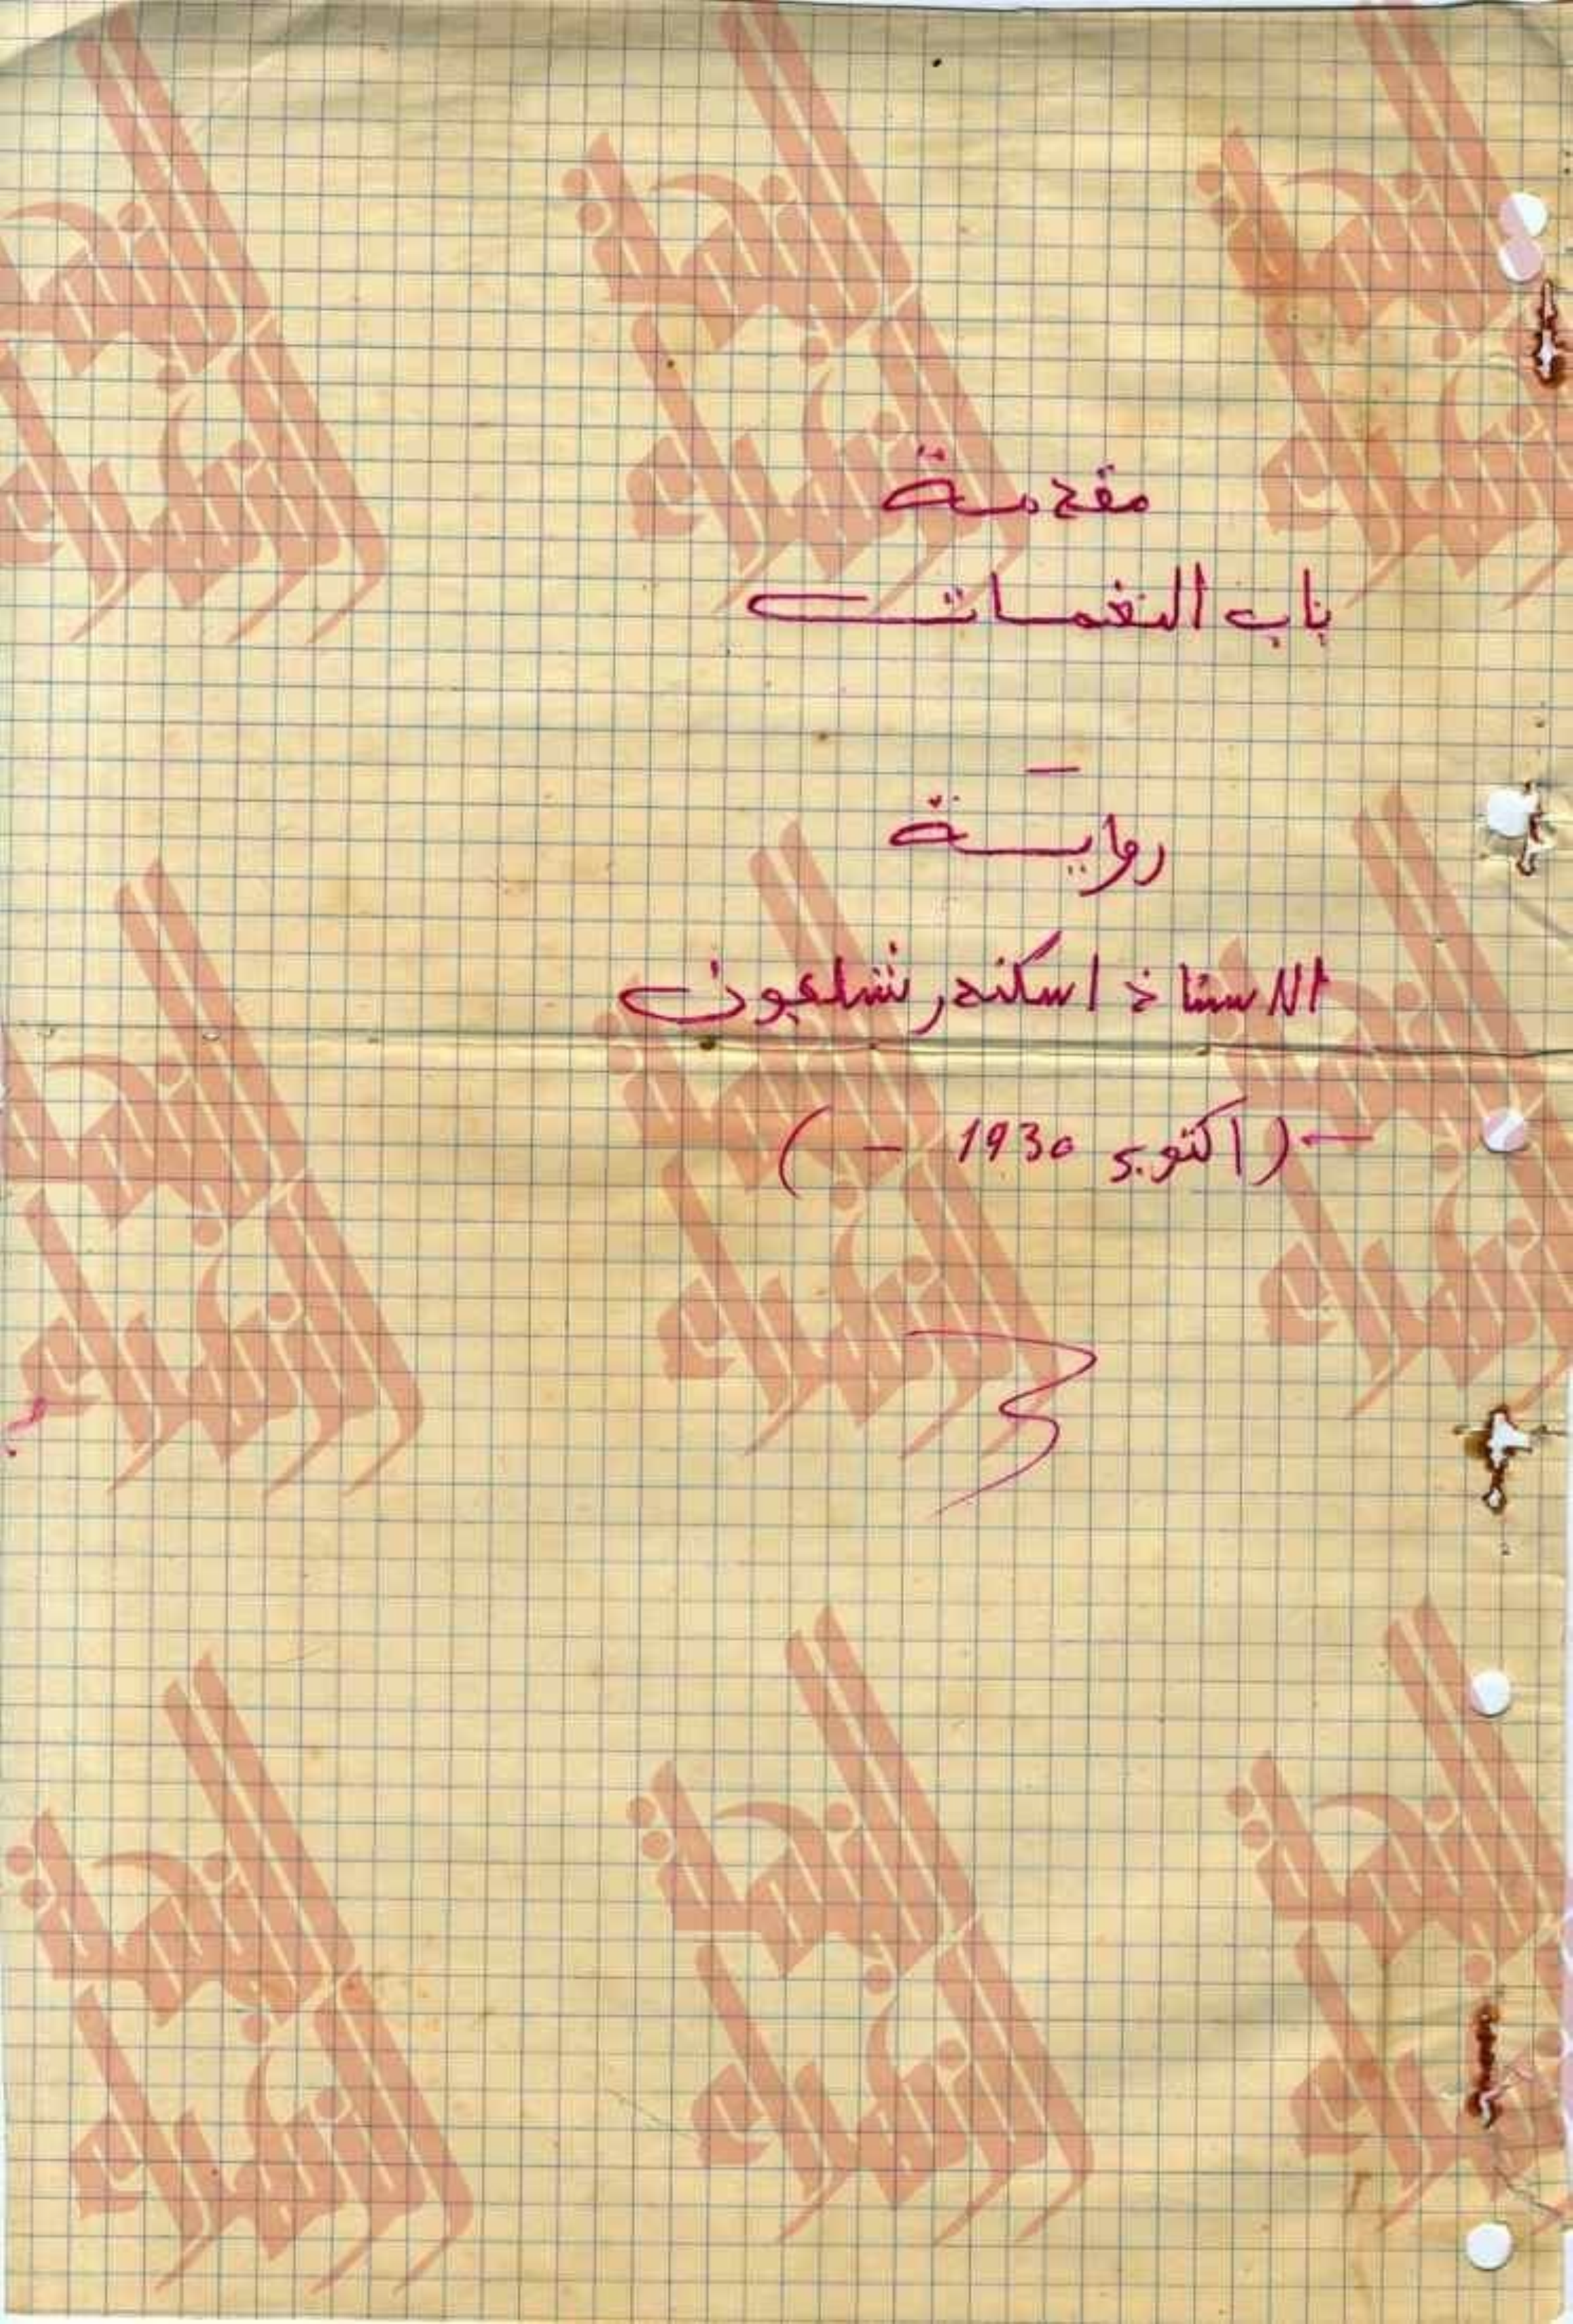 مقدمة
باب النغمات
رواية
الاستاذ اسكندر شلفون
(اكتوبر 1930 - )